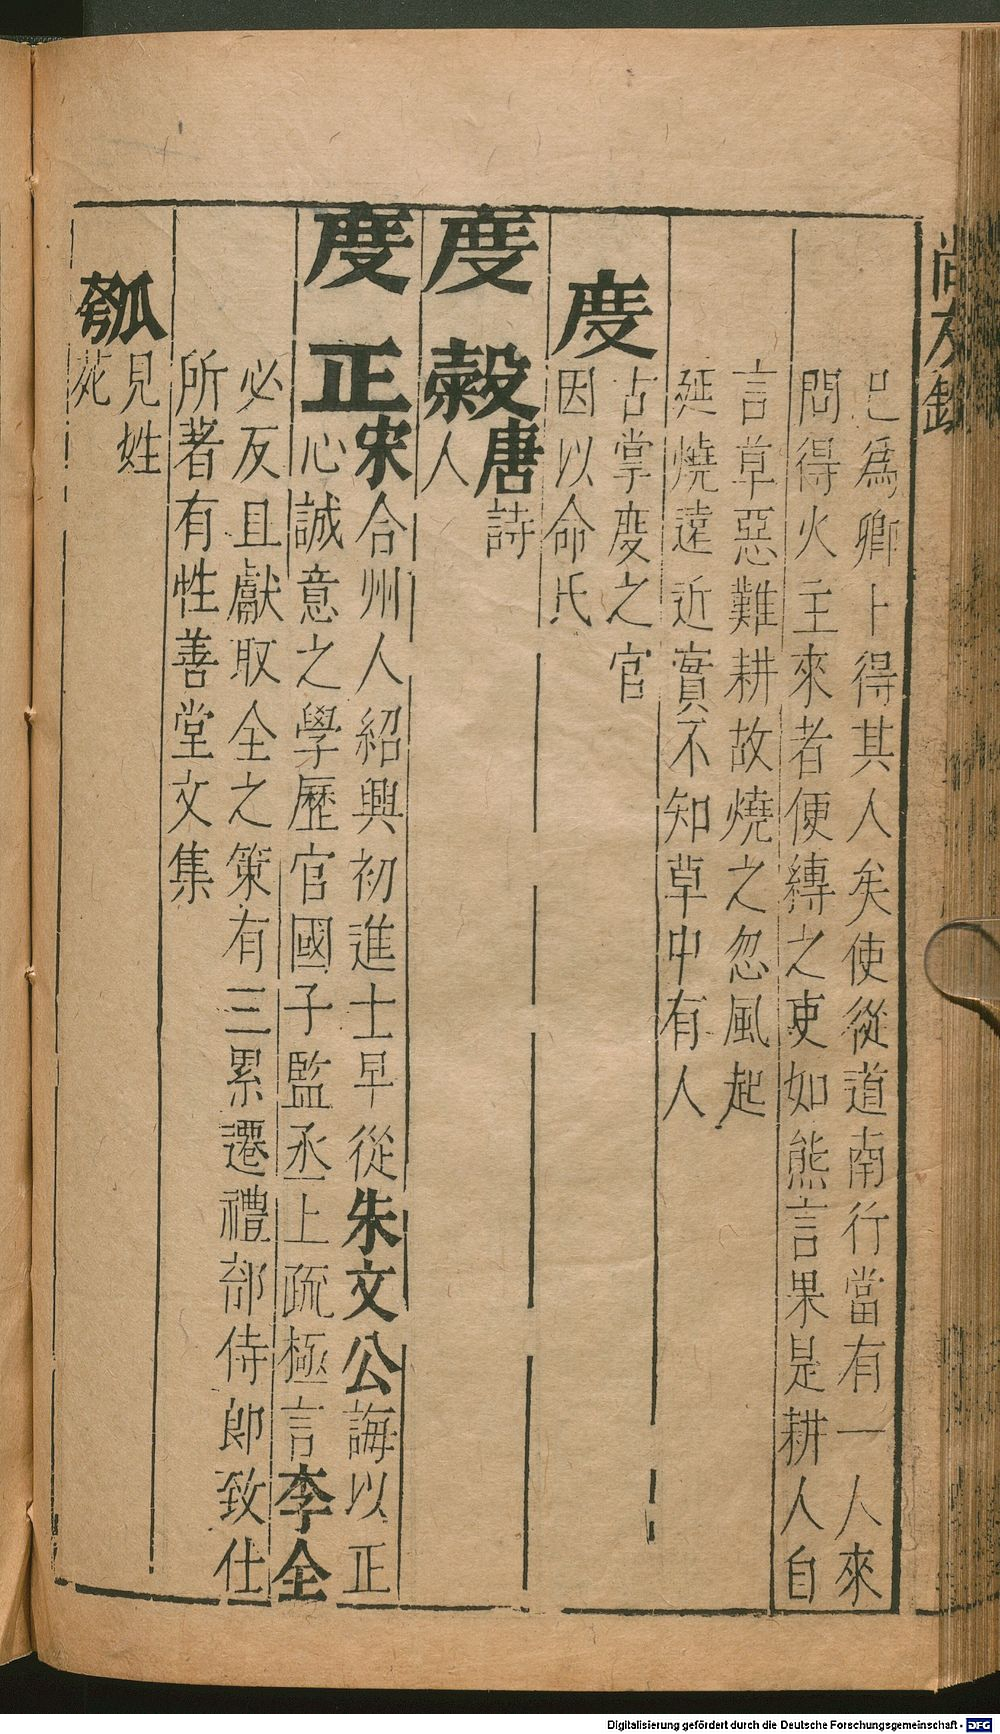 尚友錄
已爲卿卜得其人矣使從道南行當有一人來
問得火主來者便縳之吏如熊言果是耕人自
言草惡難耕故燒之忽風起
延燒遠近實不知草中有人
度
古掌度之官
因以命氏
度糓唐詩
人
度正宋合州人紹興初進士早從朱文公誨以正
心誠意之學歷官國子監丞上疏極言李全
必反且獻取全之策有三累遷禮部侍郎致仕
所著有性善堂文集
瓠
見姓
苑
Digitalisierung gefördert durch die Deutsche Forschungsgemeinschaft - DFG